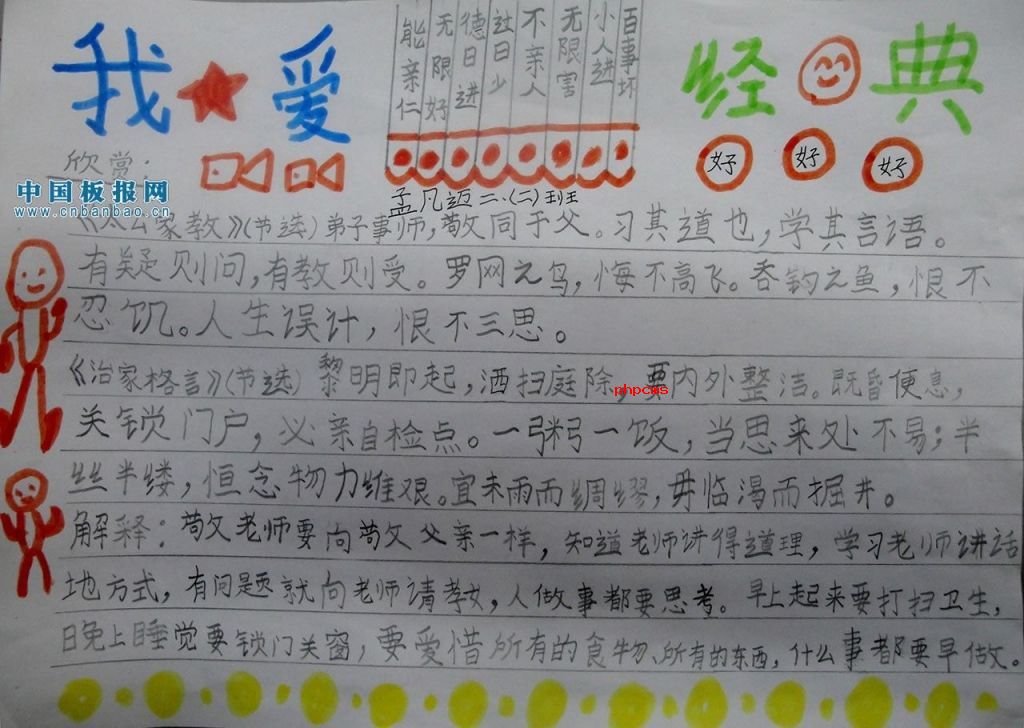 我爱
能亲仁
无限好
德日进
过日少
不亲人
无限害
小人进
百事坏
经典
好 好 好
欣赏:
中国板报网
www.cnbanbao.cn
孟凡迈二.(二)班
《太公家教》(节选)弟子事师,敬同于父。习其道也,学其言语。
有疑则问,有教则受。罗网之鸟,悔不高飞。吞钩之鱼,恨不
忍饥。人生误计,恨不三思。
《治家格言》(节选) 黎明即起,洒扫庭除,要内外整洁。既昏便息,
phpcms
关锁门户,必亲自检点。一粥一饭,当思来处不易;半
丝半缕,恒念物力维艰。宜未雨而绸缪,毋临渴而掘井。
解释:敬老师要向敬父亲一样,知道老师讲得道理,学习老师讲话
地方式,有问题就向老师请教,人做事都要思考。早上起来要打扫卫生,
日免上睡觉要锁门关窗,要爱惜所有的食物、所有的东西,什么事都要早做。